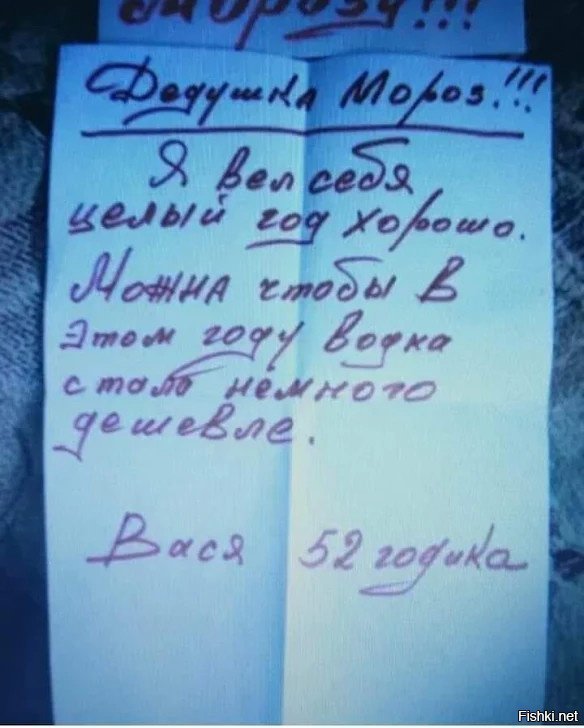 Морозу!!!
Дедушка Мороз!!!
Я вел себя
целый год хорошо.
Можна чтобы в
этом году водка
стала немного
дешевле.
Вася 52 годика
Fishki.net